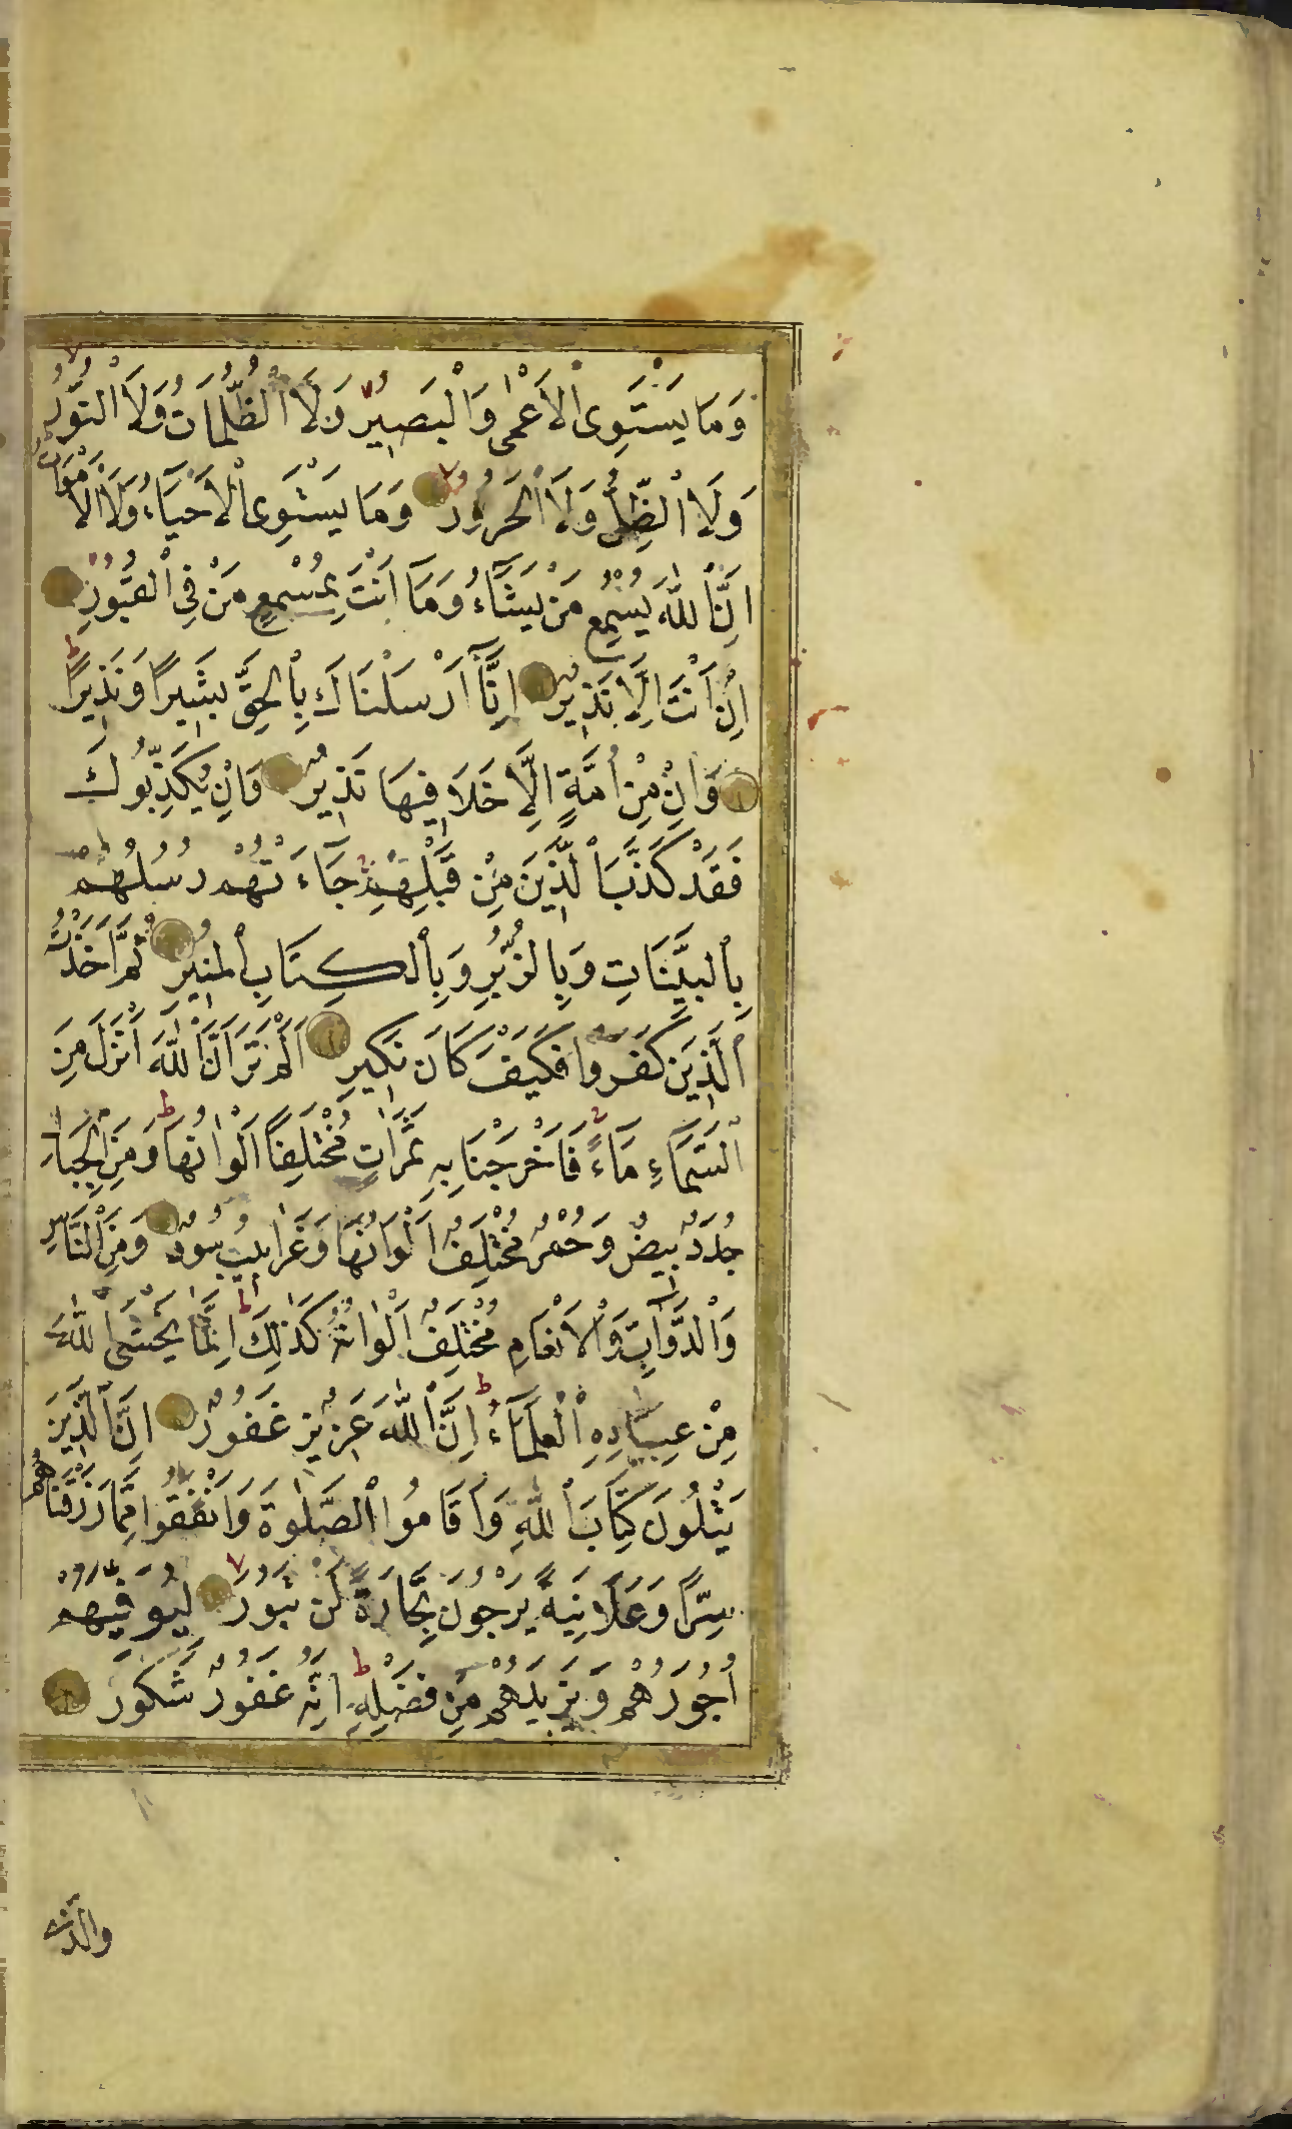 وَمَا يَسْتَوِى الْاَعْمٰى وَالْبَصِيرُ وَلَا الظُّلُمَاتُ وَلَا النُّورُ
وَلَا الظِّلُّ وَلَا الْحَرُورُ وَمَا يَسْتَوِى الْاَحْيَاءُ وَلَا الْاَمْوَاتُ
اِنَّ اللّٰهَ يُسْمِعُ مَنْ يَشَاءُ وَمَا اَنْتَ بِمُسْمِعٍ مَنْ فِى الْقُبُورِ
اِنْ اَنْتَ اِلَّا نَذِيرٌ اِنَّا اَرْسَلْنَاكَ بِالْحَقِّ بَشِيرًا وَنَذِيرًا
وَاِنْ مِنْ اُمَّةٍ اِلَّا خَلَا فِيهَا نَذِيرٌ وَاِنْ يُكَذِّبُوكَ
فَقَدْ كَذَّبَ الَّذِينَ مِنْ قَبْلِهِمْ جَاءَتْهُمْ رُسُلُهُمْ
بِالْبَيِّنَاتِ وَبِالزُّبُرِ وَبِالْكِتَابِ الْمُنِيرِ ثُمَّ اَخَذْتُ
الَّذِينَ كَفَرُوا فَكَيْفَ كَانَ نَكِيرِ اَلَمْ تَرَ اَنَّ اللّٰهَ اَنْزَلَ مِنَ
السَّمَاءِ مَاءً فَاَخْرَجْنَا بِهِ ثَمَرَاتٍ مُخْتَلِفًا اَلْوَانُهَا وَمِنَ الْجِبَالِ
جُدَدٌ بِيضٌ وَحُمْرٌ مُخْتَلِفٌ اَلْوَانُهَا وَغَرَابِيبُ سُودٌ وَمِنَ النَّاسِ
وَالدَّوَابِّ وَالْاَنْعَامِ مُخْتَلِفٌ اَلْوَانُهُ كَذٰلِكَ اِنَّمَا يَخْشَى اللّٰهَ
مِنْ عِبَادِهِ الْعُلَمَاءُ اِنَّ اللّٰهَ عَزِيزٌ غَفُورٌ اِنَّ الَّذِينَ
يَتْلُونَ كِتَابَ اللّٰهِ وَاَقَامُوا الصَّلٰوةَ وَاَنْفَقُوا مِمَّا رَزَقْنَاهُمْ
سِرًّا وَعَلَانِيَةً يَرْجُونَ تِجَارَةً لَنْ تَبُورَ لِيُوَفِّيَهُمْ
اُجُورَهُمْ وَيَزِيدَهُمْ مِنْ فَضْلِهِ اِنَّهُ غَفُورٌ شَكُورٌ